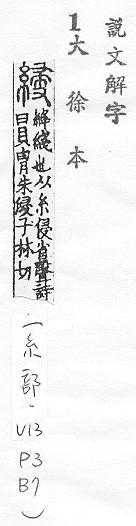 說文解字
1大徐本
綅
絳綫也从糸侵省聲詩
曰貝冑朱綅子林切
(糸部.
V13
P3
B7)